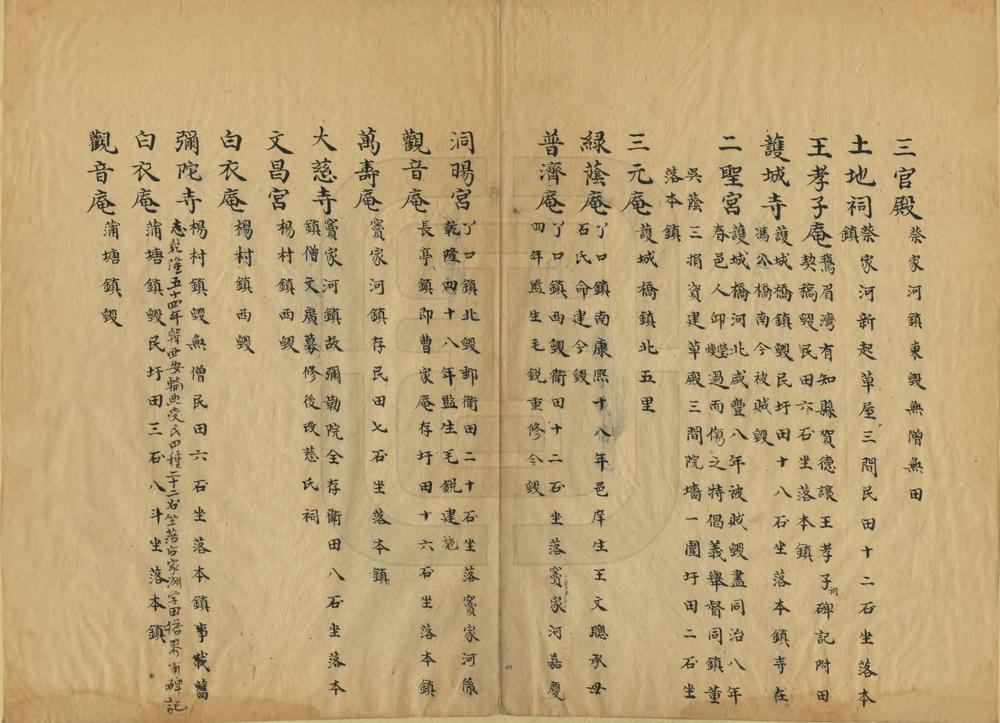 三官殿 蔡家河鎮東毀無僧無田
土地祠 蔡家河新起草屋三間民田十二石坐落本
鎮
王孝子庵 鵞眉灣有知縣賀德讓王孝子祠碑記附田
契稿毀民田六石坐落本鎮
護城寺 護城橋鎮毀民圩田十八石坐落本鎮寺在
馮公橋南今被賊毀
二聖宮 護城橋河北咸豐八年被賊毀盡同治八年
春邑人卬過而傷之特倡義舉督同鎮董
吳蔭三捐資建草殿三間院墻一圍圩田二石坐
落本鎮
三元庵 護城橋鎮北五里
綠蔭庵 丫口鎮南康熙十八年邑庠生王文聰承母
石氏命建今毀
普濟庵 丫口鎮西毀衛田十二石坐落竇家河嘉慶
四年監生毛銳重修今毀
洞陽宮 丫口鎮北毀郵衛田二十石坐落竇家河係
乾隆四十八年監生毛銳建施
觀音庵 長亭鎮即曹家庵存圩田十六石坐落本鎮
萬壽庵 竇家河鎮存民田七石坐落本鎮
大慈寺 竇家河鎮故彌勒院全存衛田八石坐落本
鎮僧文廣募修後改慈氏祠
文昌宮 楊村鎮西毀
白衣庵 楊村鎮西毀
彌陀寺 楊村鎮毀無僧民田六石坐落本鎮事載舊
志乾隆五十四年韓世安輸典受民田種二十二石坐落古家湖學田搭界有碑記
白衣庵 蒲塘鎮毀民圩田三石八斗坐落本鎮
觀音庵 蒲塘鎮毀